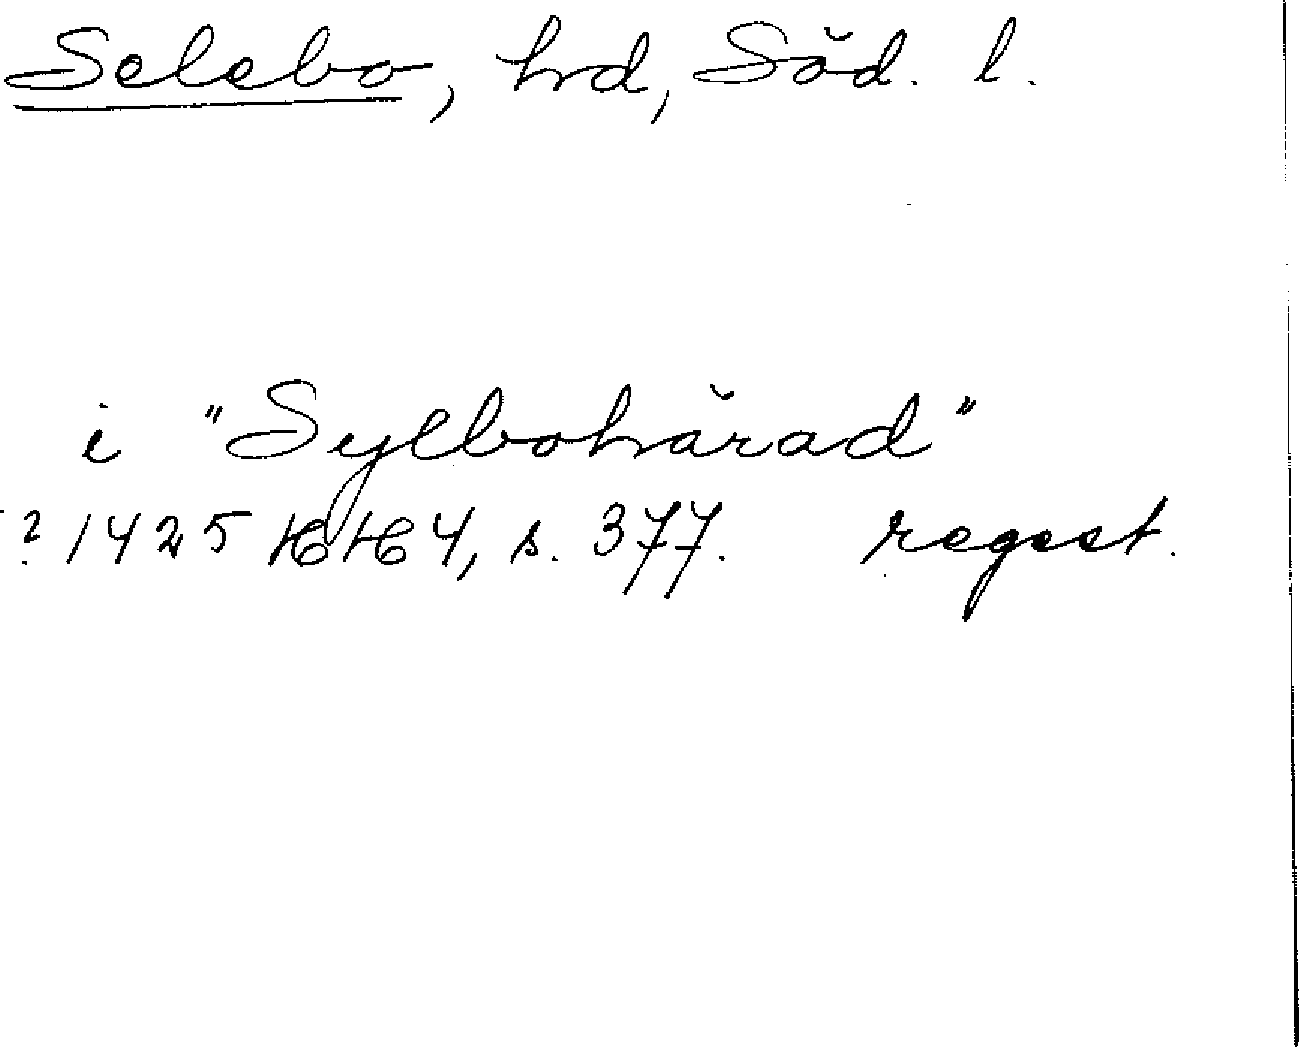 Selebo, hd, Söd. l.
i "Sylbohärad"
? 1425 HH 4, s. 377. regest.